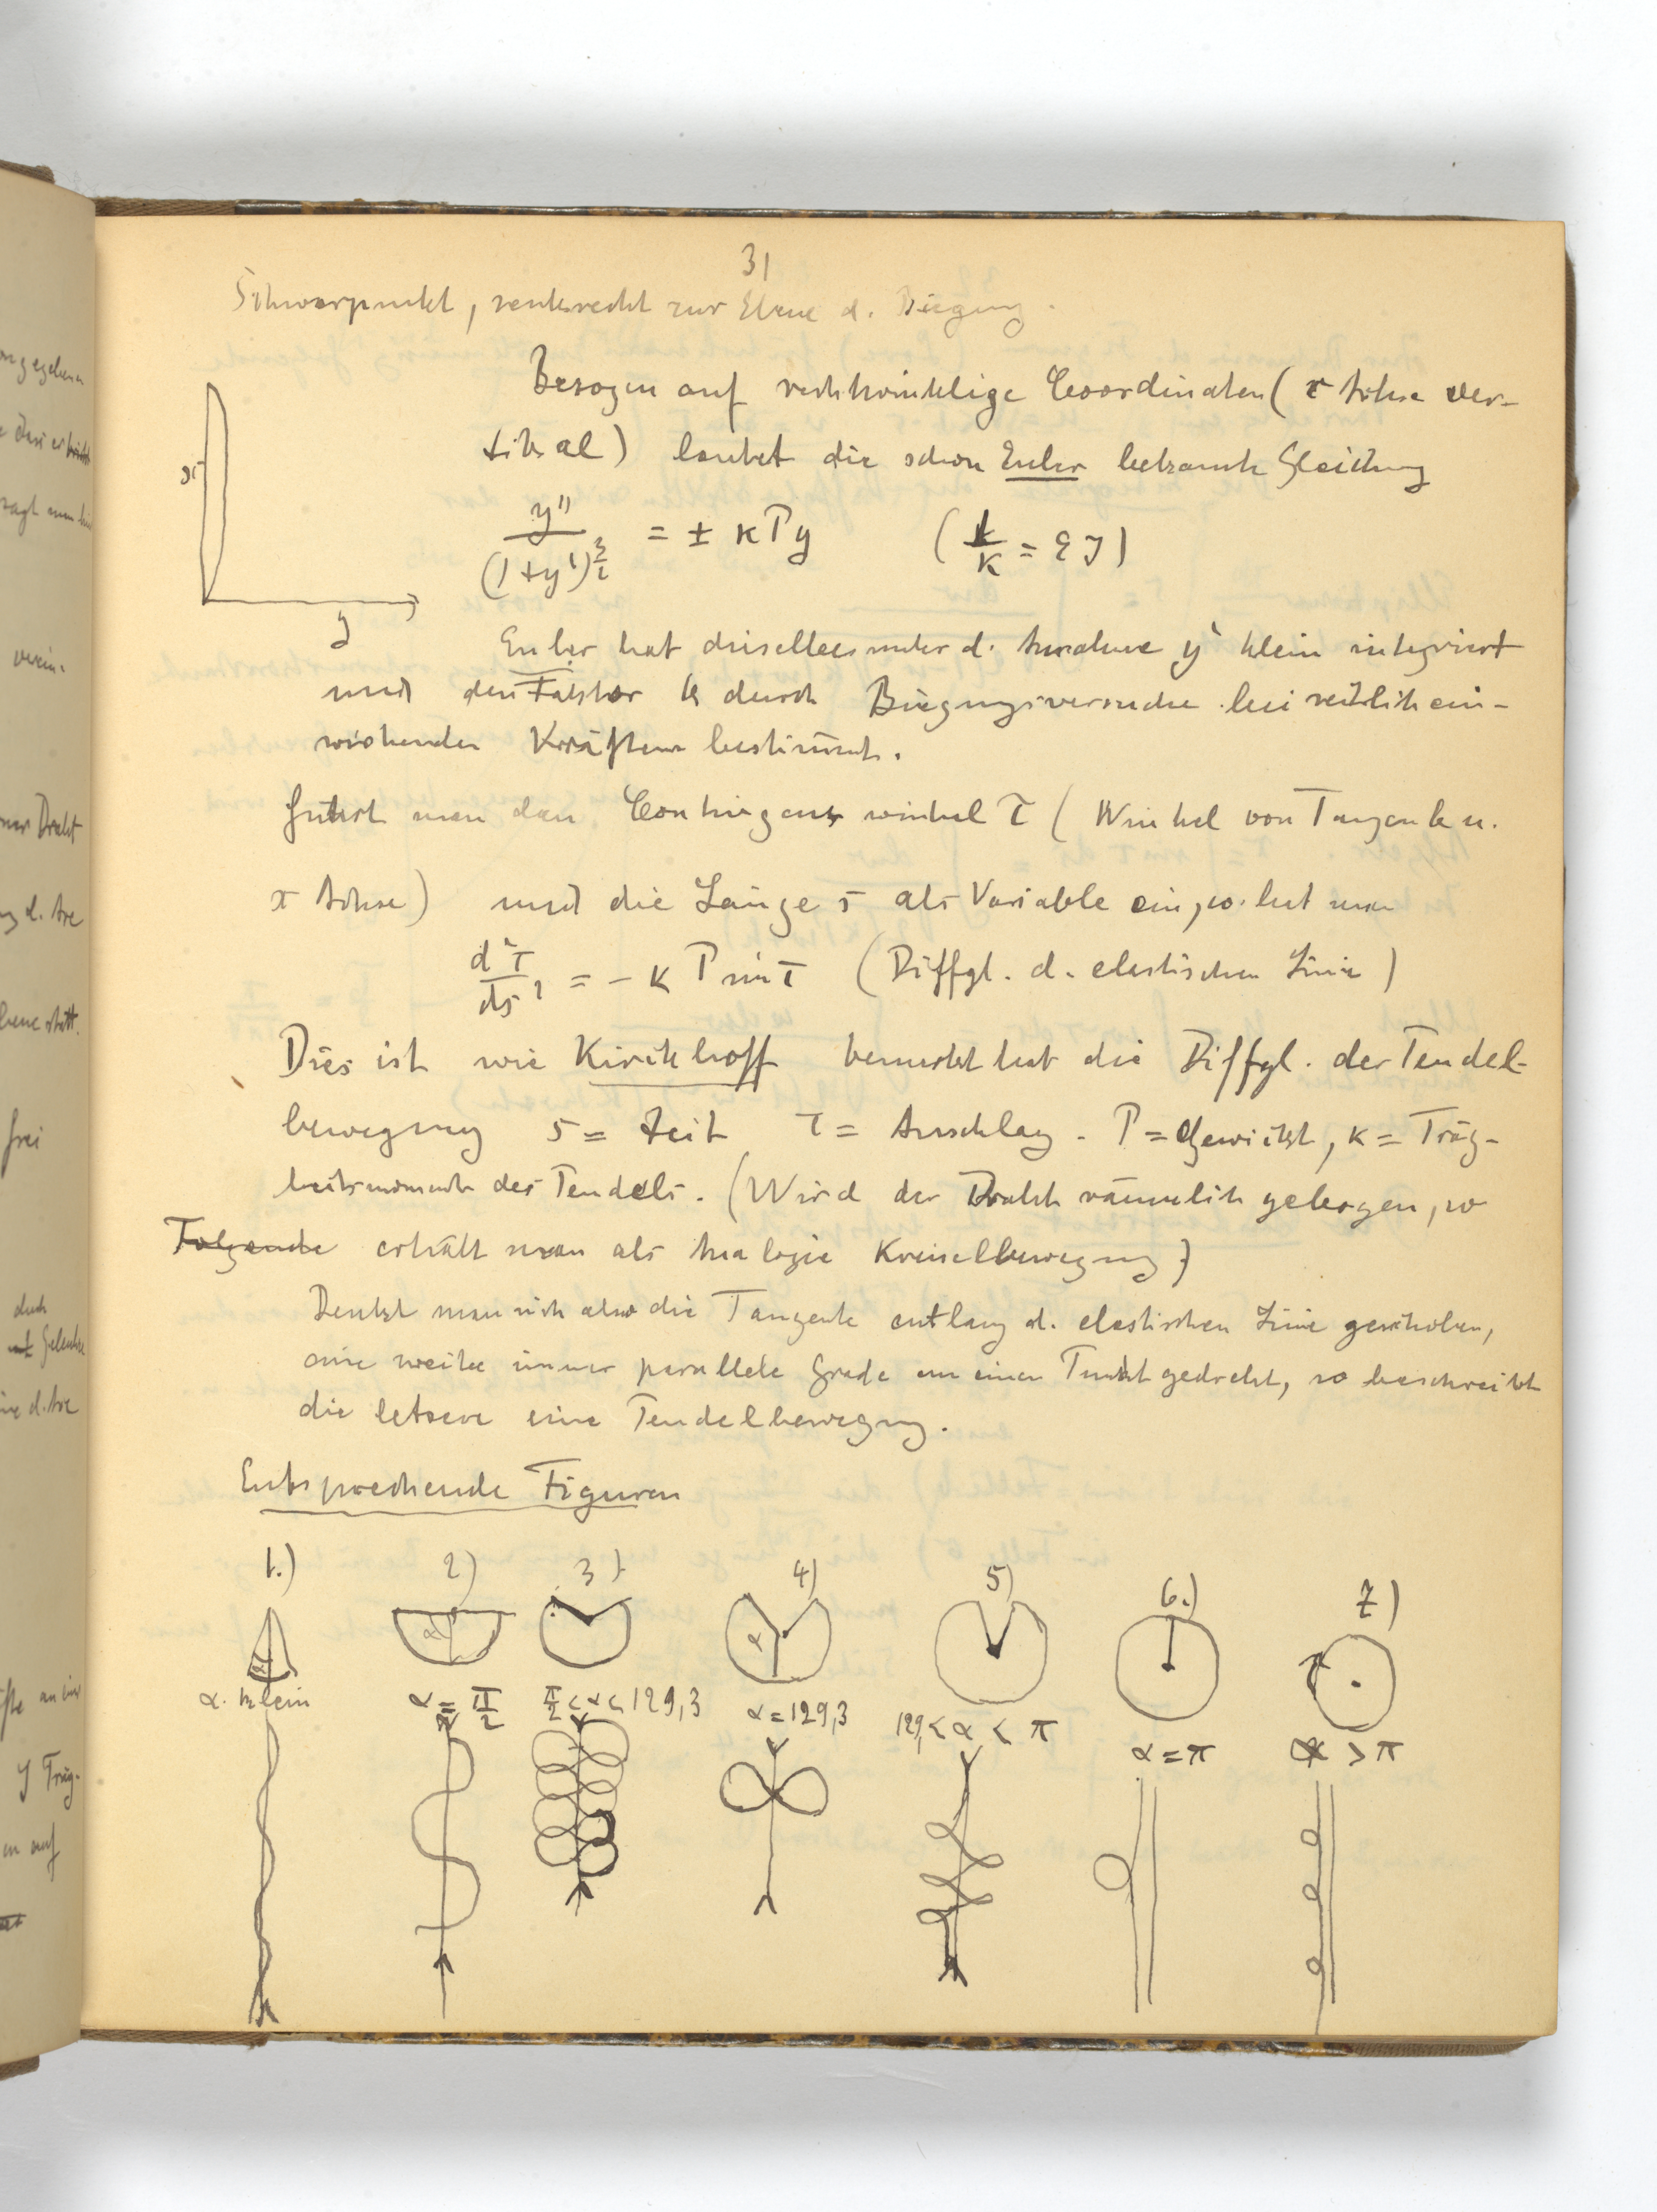 31
Schwerpunkt, senkrecht zur Ebene d. Biegung.
Bezogen auf rechtwinklige Coordinaten (x Achse ver-
tikal) lautet die schon Euler bekannte Gleichung
x
y
y'' / (1+y')^{3/2} = ± κ P y (1/κ = E J)
Euler hat dieselbe unter d. Annahme y' klein integriert
und den Faktor k durch Biegungsversuche bei seitlich ein-
wirkenden Kräften bestimmt.
Führt man den Contingenzwinkel τ (Winkel von Tangente u.
x Achse) und die Länge s als Variable ein, so hat man
d²τ/ds² = - κ P sin τ (Diffgl. d. elastischen Linie)
Dies ist wie Kirchhoff bemerkt hat die Diffgl. der Pendel-
bewegung s = Zeit τ = Ausschlag. P = Gewicht, κ = Träg-
heitsmoment des Pendels. (Wird der Draht räumlich gebogen, so
Folgende erhält man als Analogie Kreiselbewegung)
Denkt man sich also die Tangente entlang d. elastischen Linie geschoben,
eine weite immer parallele Grade um einen Punkt gedreht, so beschreibt
die letzere eine Pendelbewegung.
Entsprechende Figuren
1.) 2) 3) 4) 5) 6.) 7)
α α α
α. klein α = π/2 π/2 < α < 129,3 α = 129,3 129, < α < π α = π α > π